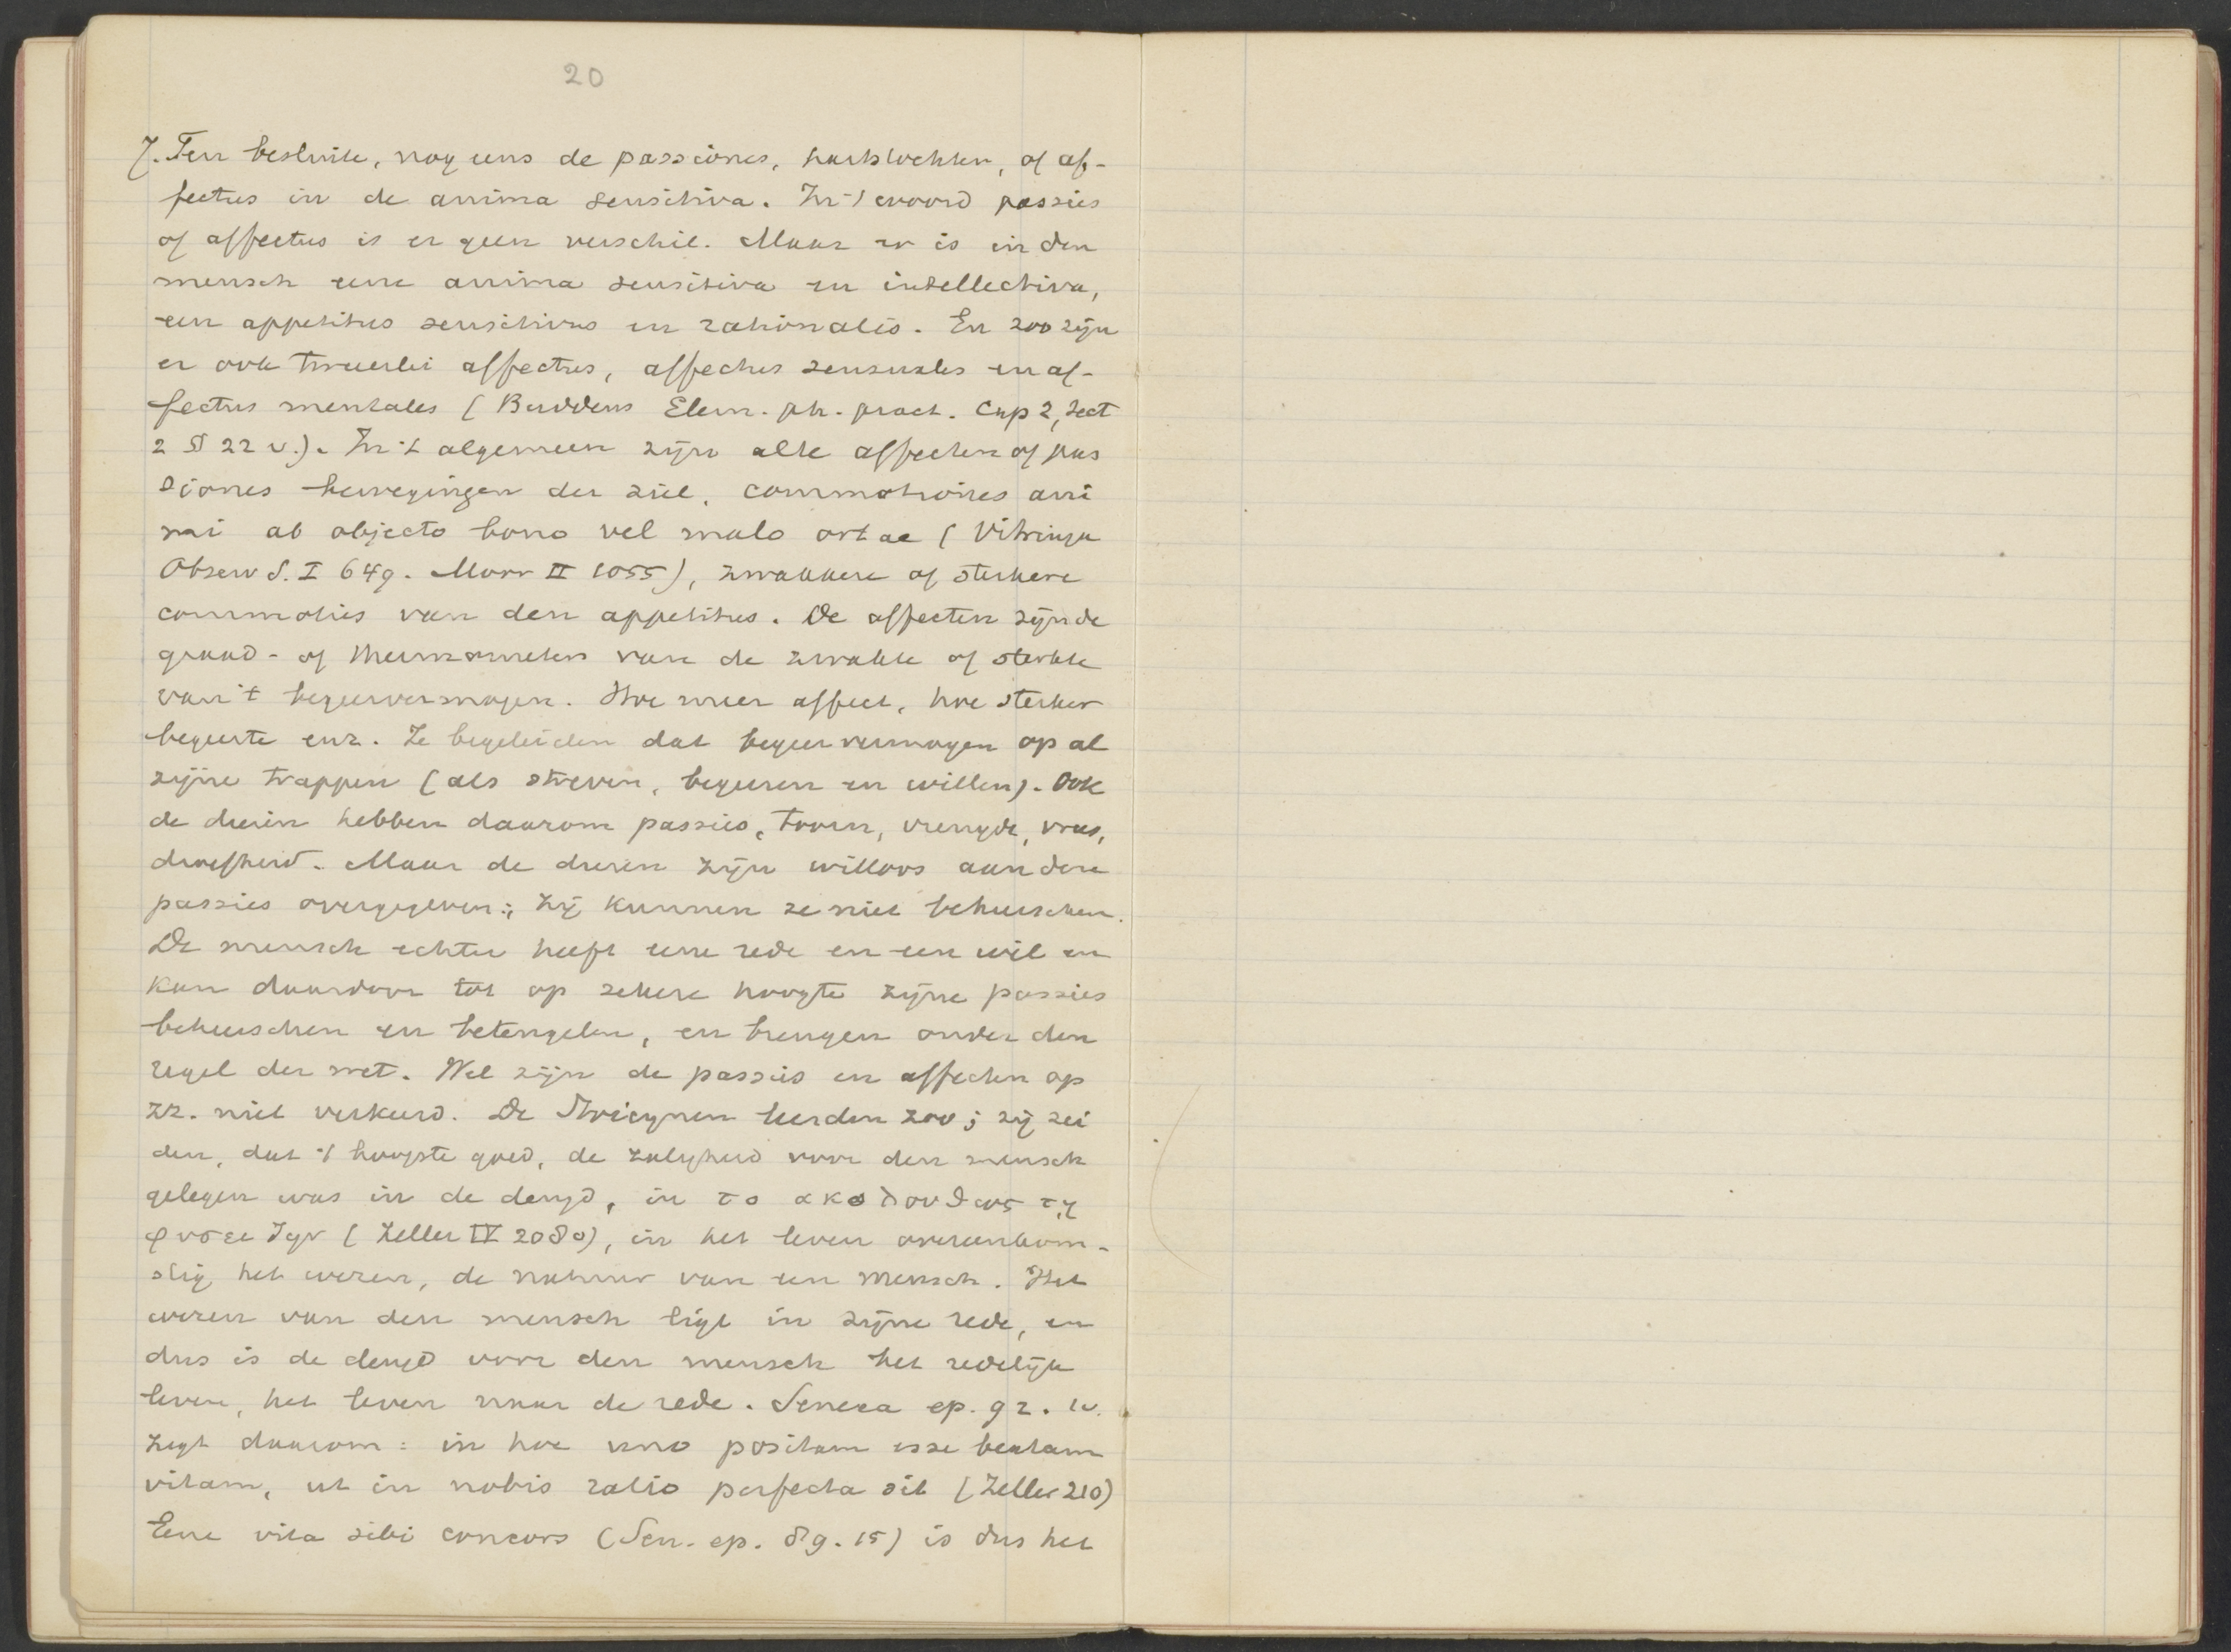 20
7. Ten besluite, nog eens de passiones, hartstochten, of af-
fectus in de anima sensitiva. In 't woord passies
of affectus is er geen verschil. Maar er is in den
mensch eene anima sensitiva en intellectiva,
een appetitus sensitivus en rationalis. En zoo zijn
er ook tweeerlei affectus, affectus sensuales en af-
fectus mentales (Buddeus Elem. ph. pract. Cap 2, Sect
2 § 22 v.). In 't algemeen zijn alle affecten of pas
siones bewegingen der ziel, commotiones ani
mi ab objecto bono vel malo ortae (Vitringa
Observ S. I 649. Moor II 1055), zwakkere of sterkere
commoties van den appetitus. De affecten zijn de
graad- of thermometers van de zwakte of sterkte
van 't begeervermogen. Hoe meer affect, hoe sterker
begeerte enz. Ze begeleiden dat begeervermogen op al
zijne trappen (als streven, begeeren en willen). Ook
de dieren hebben daarom passies, toorn, vreugde, vrees,
droefheid. Maar de dieren zijn willoos aan deze
passies overgegeven; zij kunnen ze niet beheerschen.
De mensch echter heeft eene rede en een wil en
kan daardoor tot op zekere hoogte zijne passies
beheerschen en beteugelen, en brengen onder den
regel der wet. Wel zijn de passies en affecten op
zz. niet verkeerd. De Stoicynen leerden zoo; zij zei
den, dat 't hoogste goed, de zaligheid voor den mensch
gelegen was in de deugd, in το ακολουθως τῃ
φυσει ζῃν (Zeller IV 208 o), in het leven overeenkom-
stig het wezen, de natuur van een mensch. Het
wezen van den mensch ligt in zijne rede, en
dus is de deugd voor den mensch het redelijk
leven, het leven naar de rede. Seneca ep. 92. 10.
zegt daarom: in hoc uno positam esse beatam
vitam, ut in nobis ratio perfecta sit (Zeller 210)
Eene vita sibi concors (Sen. ep. 89. 15) is dus het